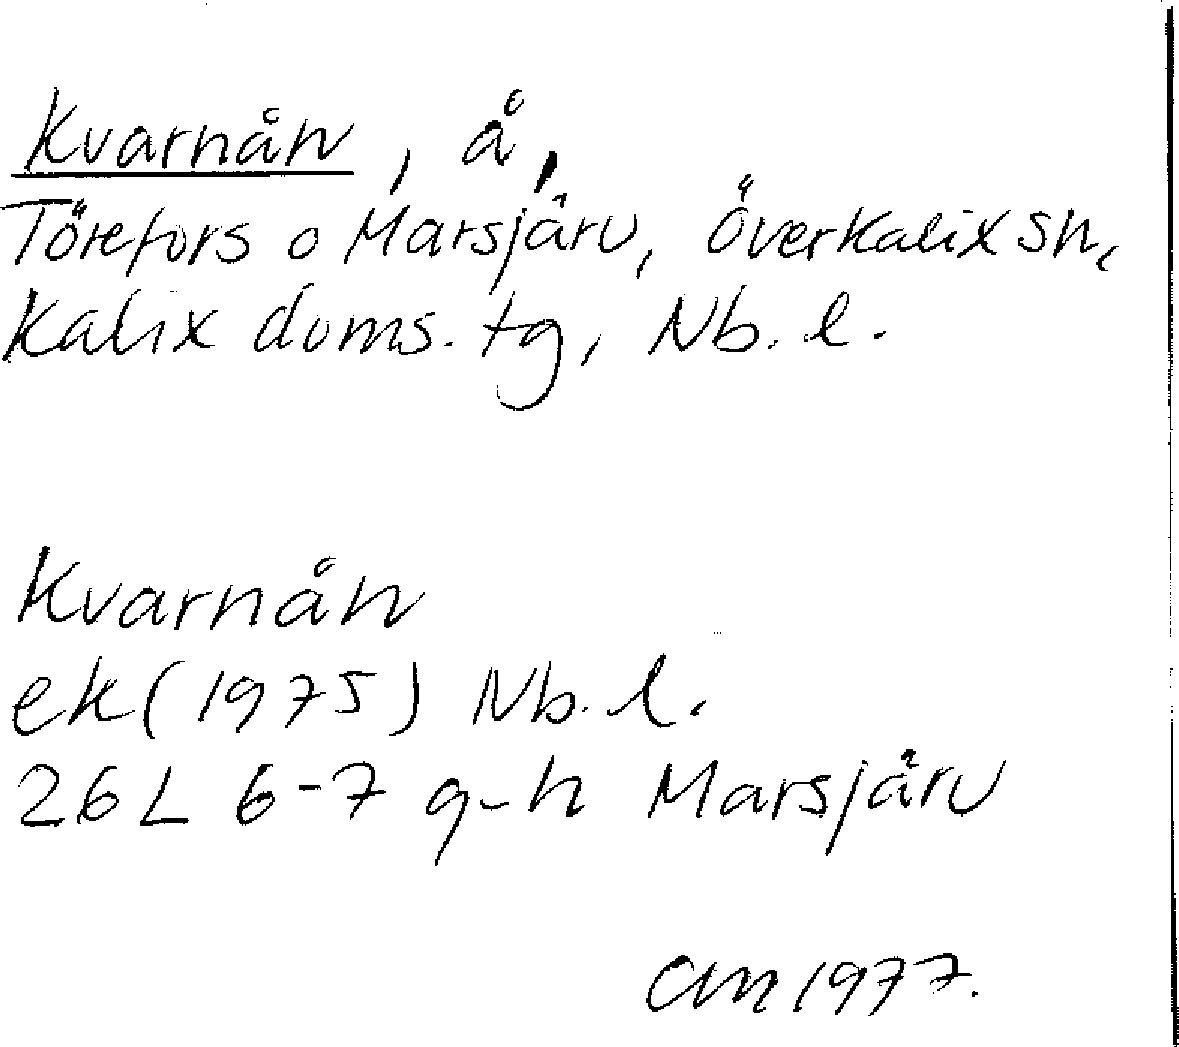 Kvarnån, å,
Törefors o Marsjärv, Överkalix sn,
Kalix doms. tg, Nb. l.
Kvarnån
ek (1975) Nb. l.
26 L 6-7 g-h Marsjärv
CM 1977.